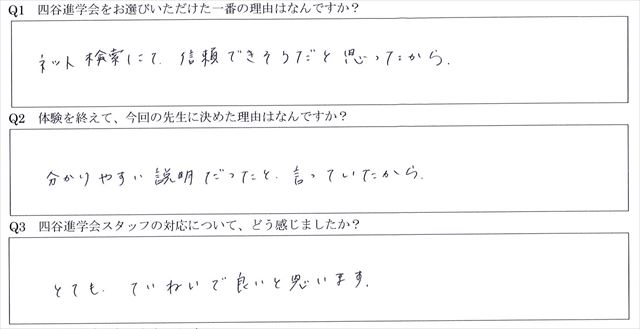 Q1 四谷進学会をお選びいただけた一番の理由はなんですか？
ネット検索にて、信頼できそうだと思ったから。
Q2 体験を終えて、今回の先生に決めた理由はなんですか？
分かりやすい説明だったと、言っていたから。
Q3 四谷進学会スタッフの対応について、どう感じましたか？
とても、ていねいで良いと思います。